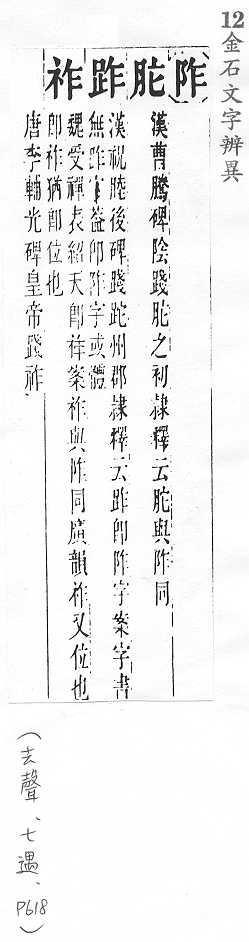 12金石文字辨異
阼胙䟭祚
漢曹騰碑陰踐胙之初隸釋云胙與阼同
漢祝睦後碑踐䟭州郡隸釋云䟭即阼字案字書
無䟭字蓋即阼字或體
魏受禪表紹天即祚案祚與阼同廣韻祚又位也
即祚猶即位也
唐李輔光碑皇帝踐祚
(去聲、七遇、P618)